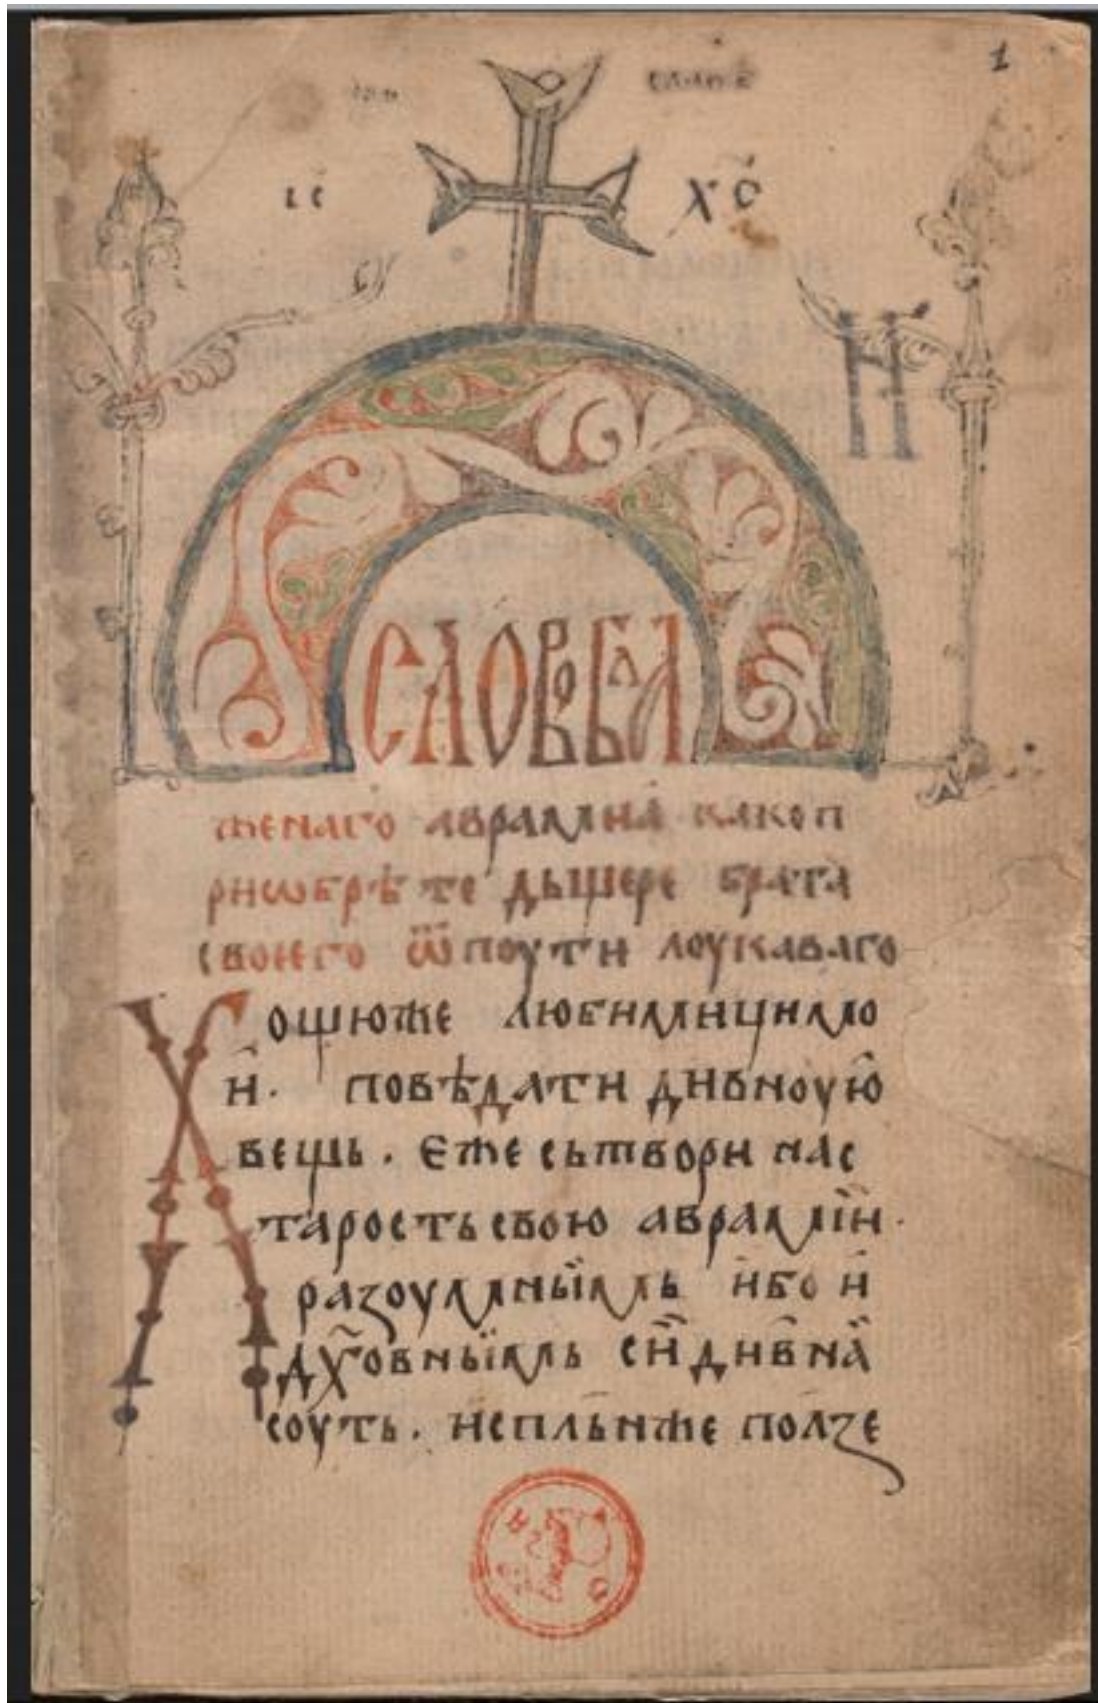 1
ІС҃ ХС҃
Н
СЛОВО БЛА
женаго авраміа како п
риѡбрѣте дьщере брата
своего ѿ поути лоукаваго
Хощюже любимицимо
и҆. повѣдати дивноую
вещь. Еже сьтвори нас
тарость свою авраміи.
разоумныимь ибо и
дх҃овныимь сїи дивна
соуть. испльнже ползе